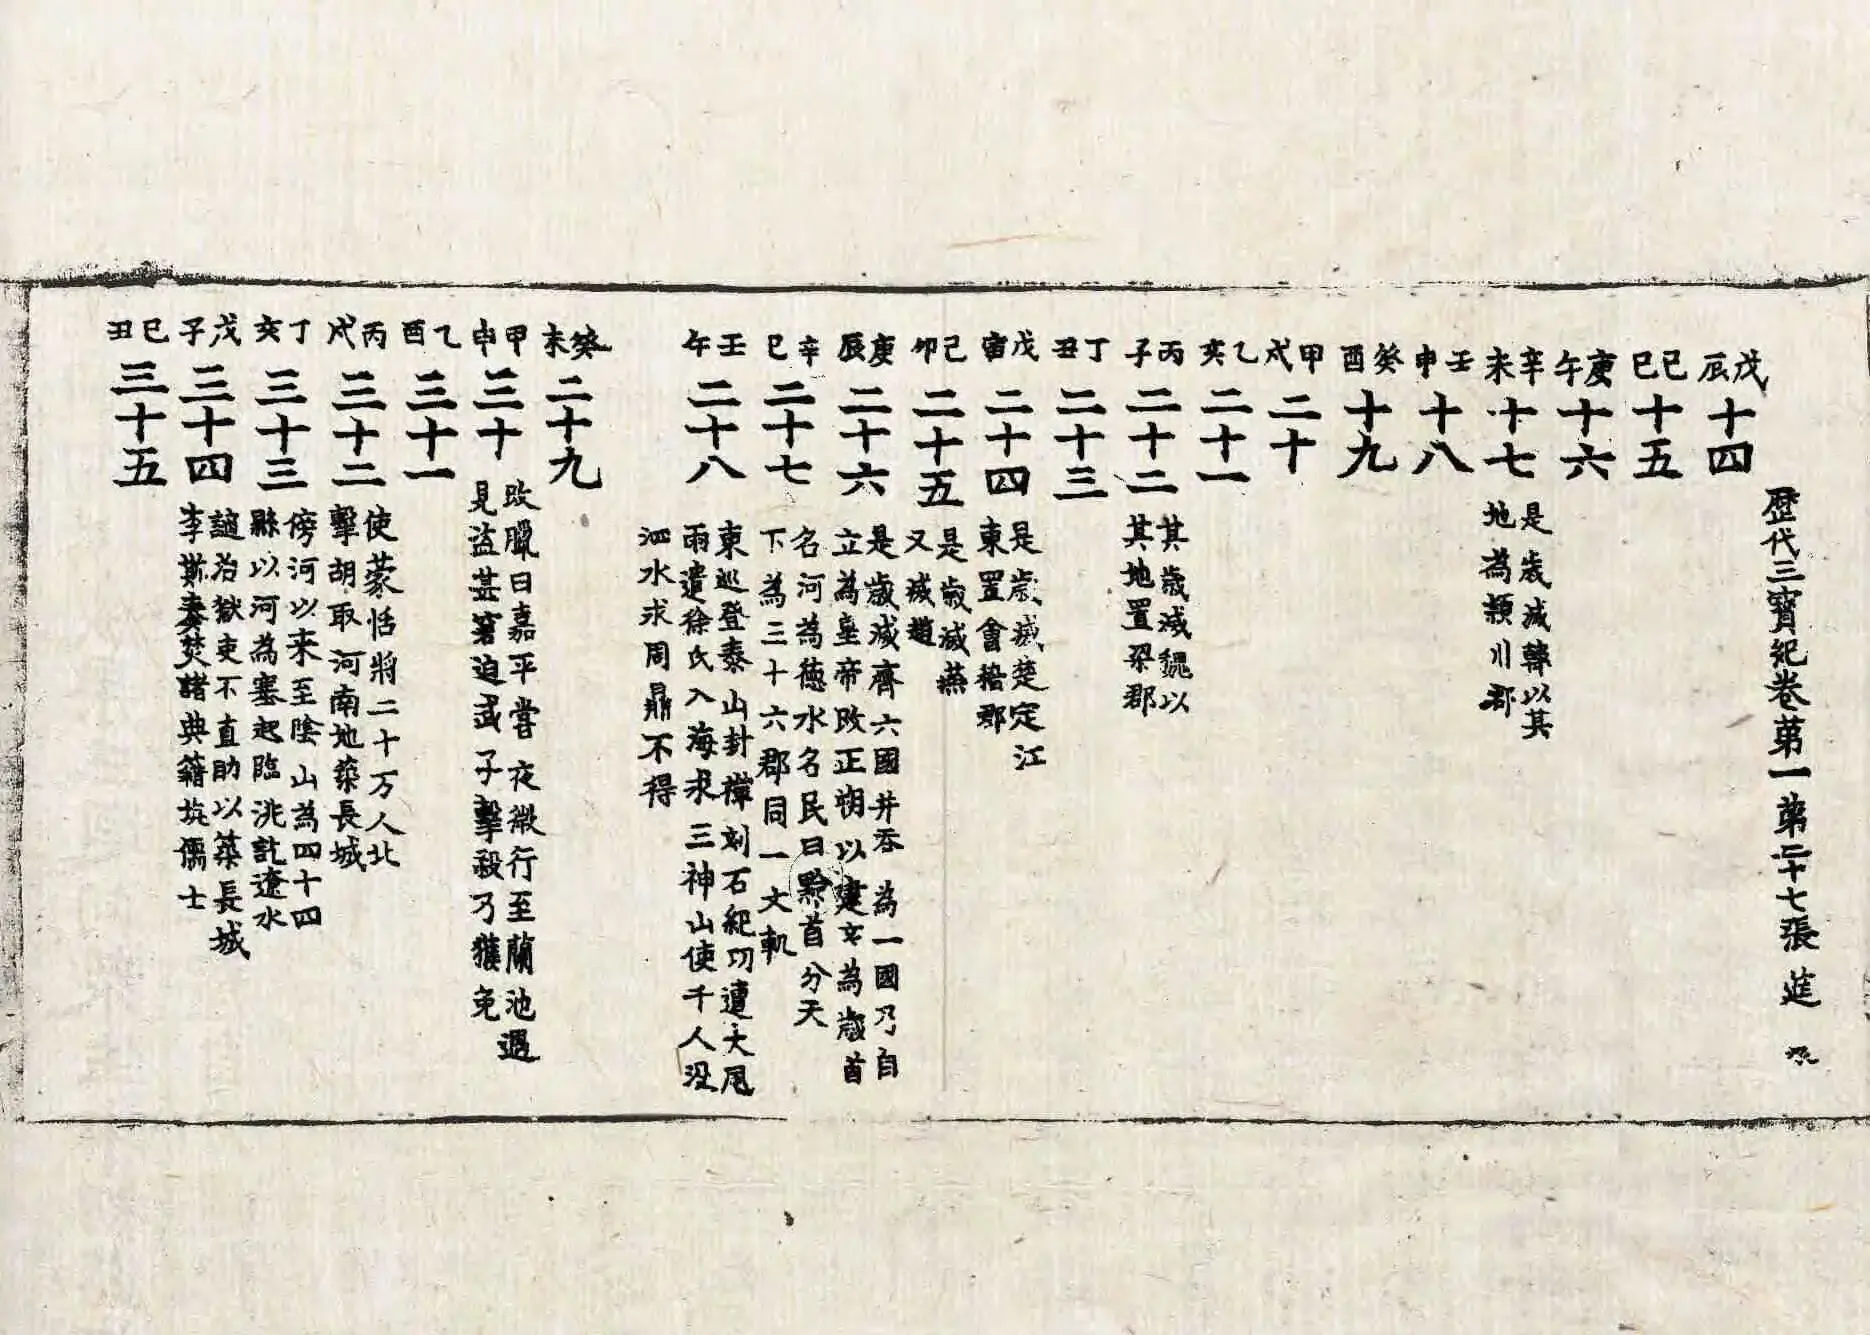 歷代三寶紀卷第一 第二十七張 莚
戊辰 十四
己巳 十五
庚午 十六
辛未 十七 是歲滅韓以其
地為潁川郡
壬申 十八
癸酉 十九
甲戌 二十
乙亥 二十一
丙子 二十二 其歲滅魏以
其地置梁郡
丁丑 二十三
戊寅 二十四 是歲滅楚定江
東置會稽郡
己卯 二十五 是歲滅燕
又滅趙
庚辰 二十六 是歲滅齊六國并吞為一國乃自
立為皇帝改正朔以建亥為歲首
辛巳 二十七 名河為德水名民曰黔首分天
下為三十六郡同一文軌
壬午 二十八 東巡登泰山封禪刻石紀功遭大風
雨遣徐氏入海求三神山使千人沒
泗水求周鼎不得
癸未 二十九
甲申 三十 改臘曰嘉平嘗夜微行至蘭池遇
見盜甚窘迫武子擊殺乃獲免
乙酉 三十一
丙戌 三十二 使蒙恬將二十万人北
擊胡取河南地築長城
丁亥 三十三 傍河以来至陰山為四十四
縣以河為塞起臨洮訖遼水
戊子 三十四 讁治獄吏不直助以築長城
李斯奏焚諸典籍坑儒士
己丑 三十五